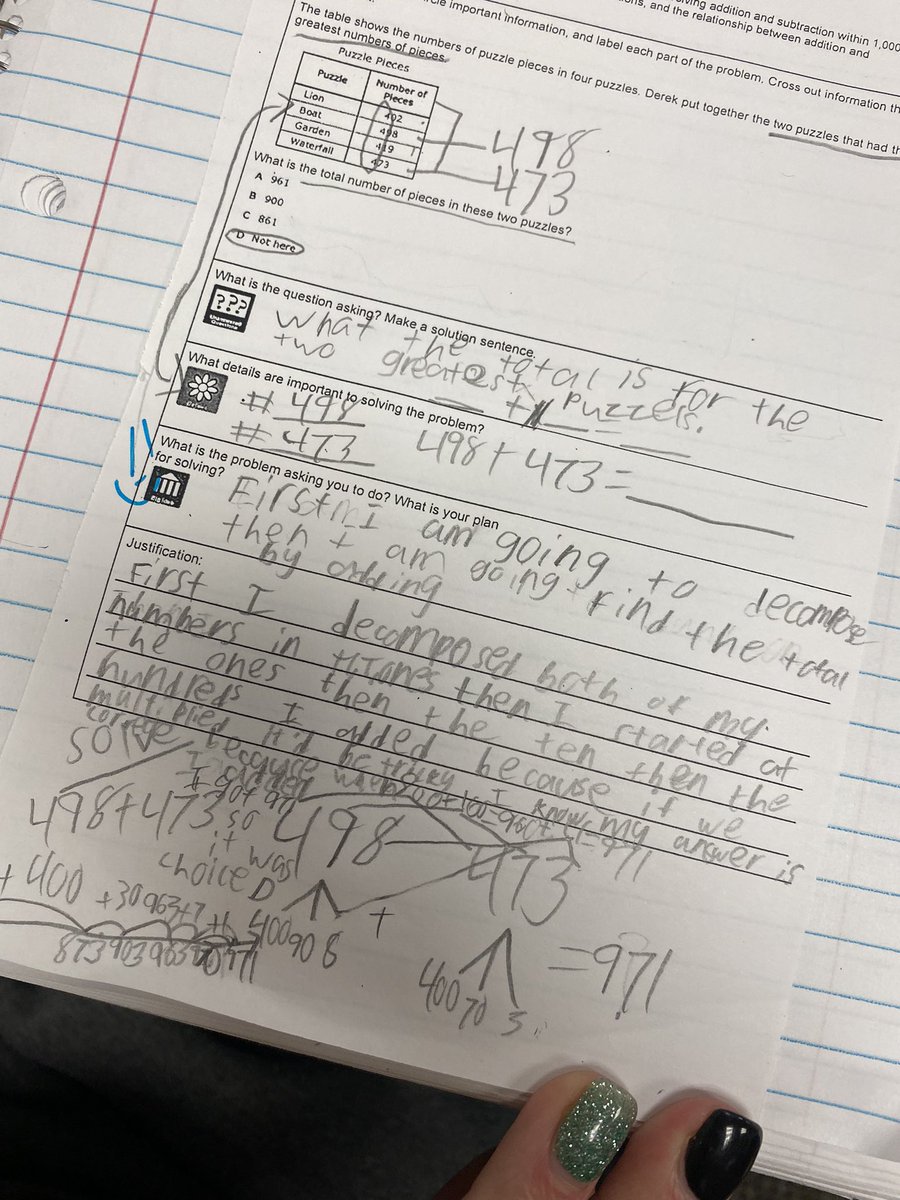 ving addition and subtraction within 1,000
important information, and label each part of the problem. Cross out information
and the relationship between addition and
The table shows the numbers of puzzle pieces in four puzzles. Derek put together the two puzzles that had
greatest numbers of pieces.
Puzzle Pieces
Puzzle Number of Pieces
Lion 402
Boat 498
Garden 419
Waterfall 473
+498
473
What is the total number of pieces in these two puzzles?
A 961
B 900
C 861
D Not here
What is the question asking? Make a solution sentence.
???
Unanswered Questions
What the total is for the
two greatest puzzles.
What details are important to solving the problem?
# 498
# 473
498+473=
What is the problem asking you to do? What is your plan
for solving?
First I am going to decompose
then I am going find the total
by adding
Justification:
First I decomposed both of my
numbers in then I started at
the ones then the ten then the
hundreds I added because if we
multiplied it'd be
because I know my answer is
I got 971
so it was
choice D
solve
498+473
498
473
+400 +30
873 903 963 971
400 90 8
+
400 70 3
=971